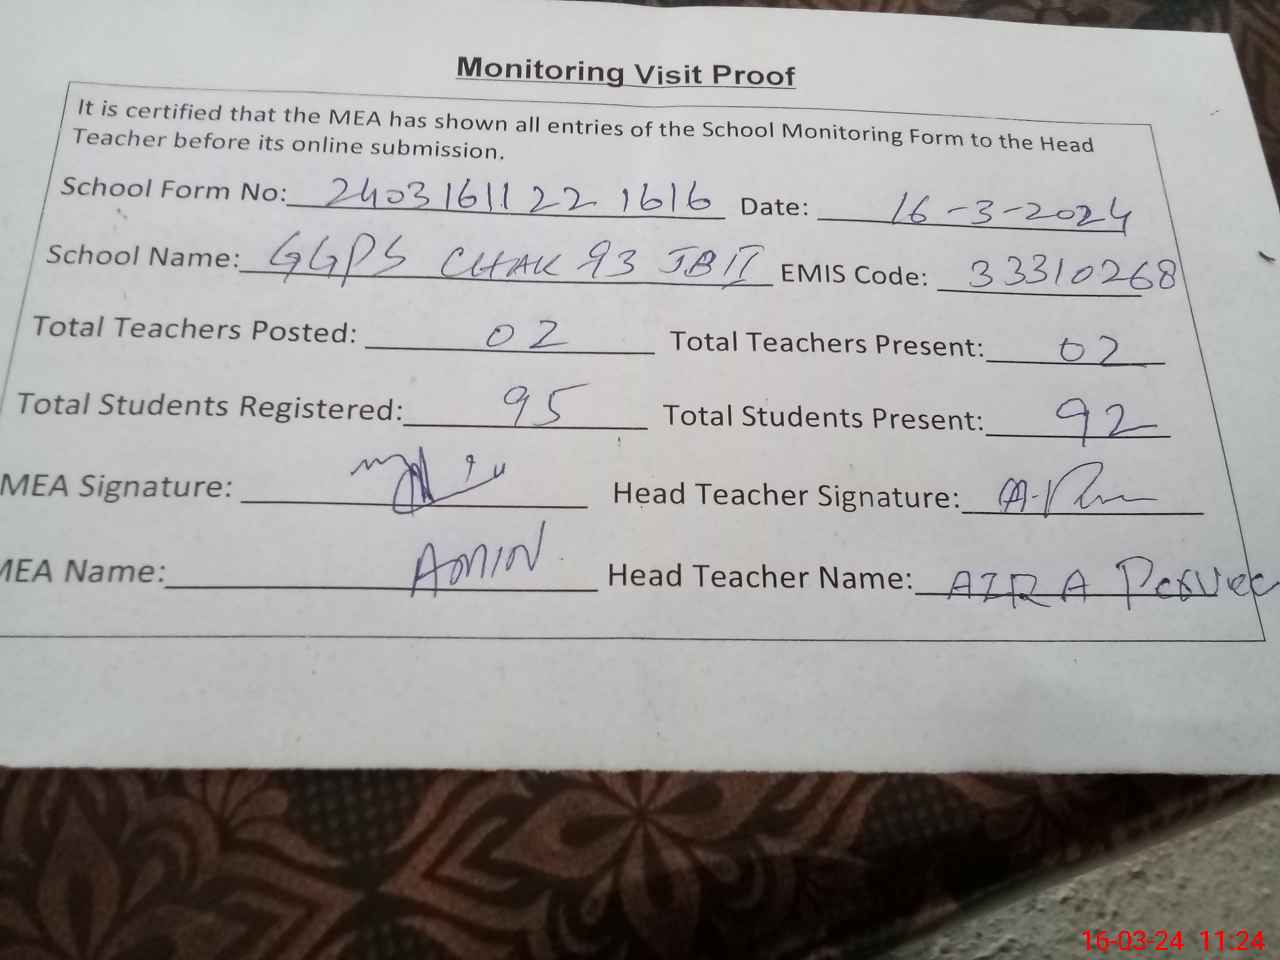 Monitoring Visit Proof
It is certified that the MEA has shown all entries of the School Monitoring Form to the Head
Teacher before its online submission.
School Form No: 2403161122 1616 Date: 16-3-2024
School Name: GGPS CHAK 93 JB II EMIS Code: 33310268
Total Teachers Posted: 02 Total Teachers Present: 02
Total Students Registered: 95 Total Students Present: 92
MEA Signature: Head Teacher Signature:
MEA Name: AMIN Head Teacher Name: AZRA Pervee
16-03-24 11:24